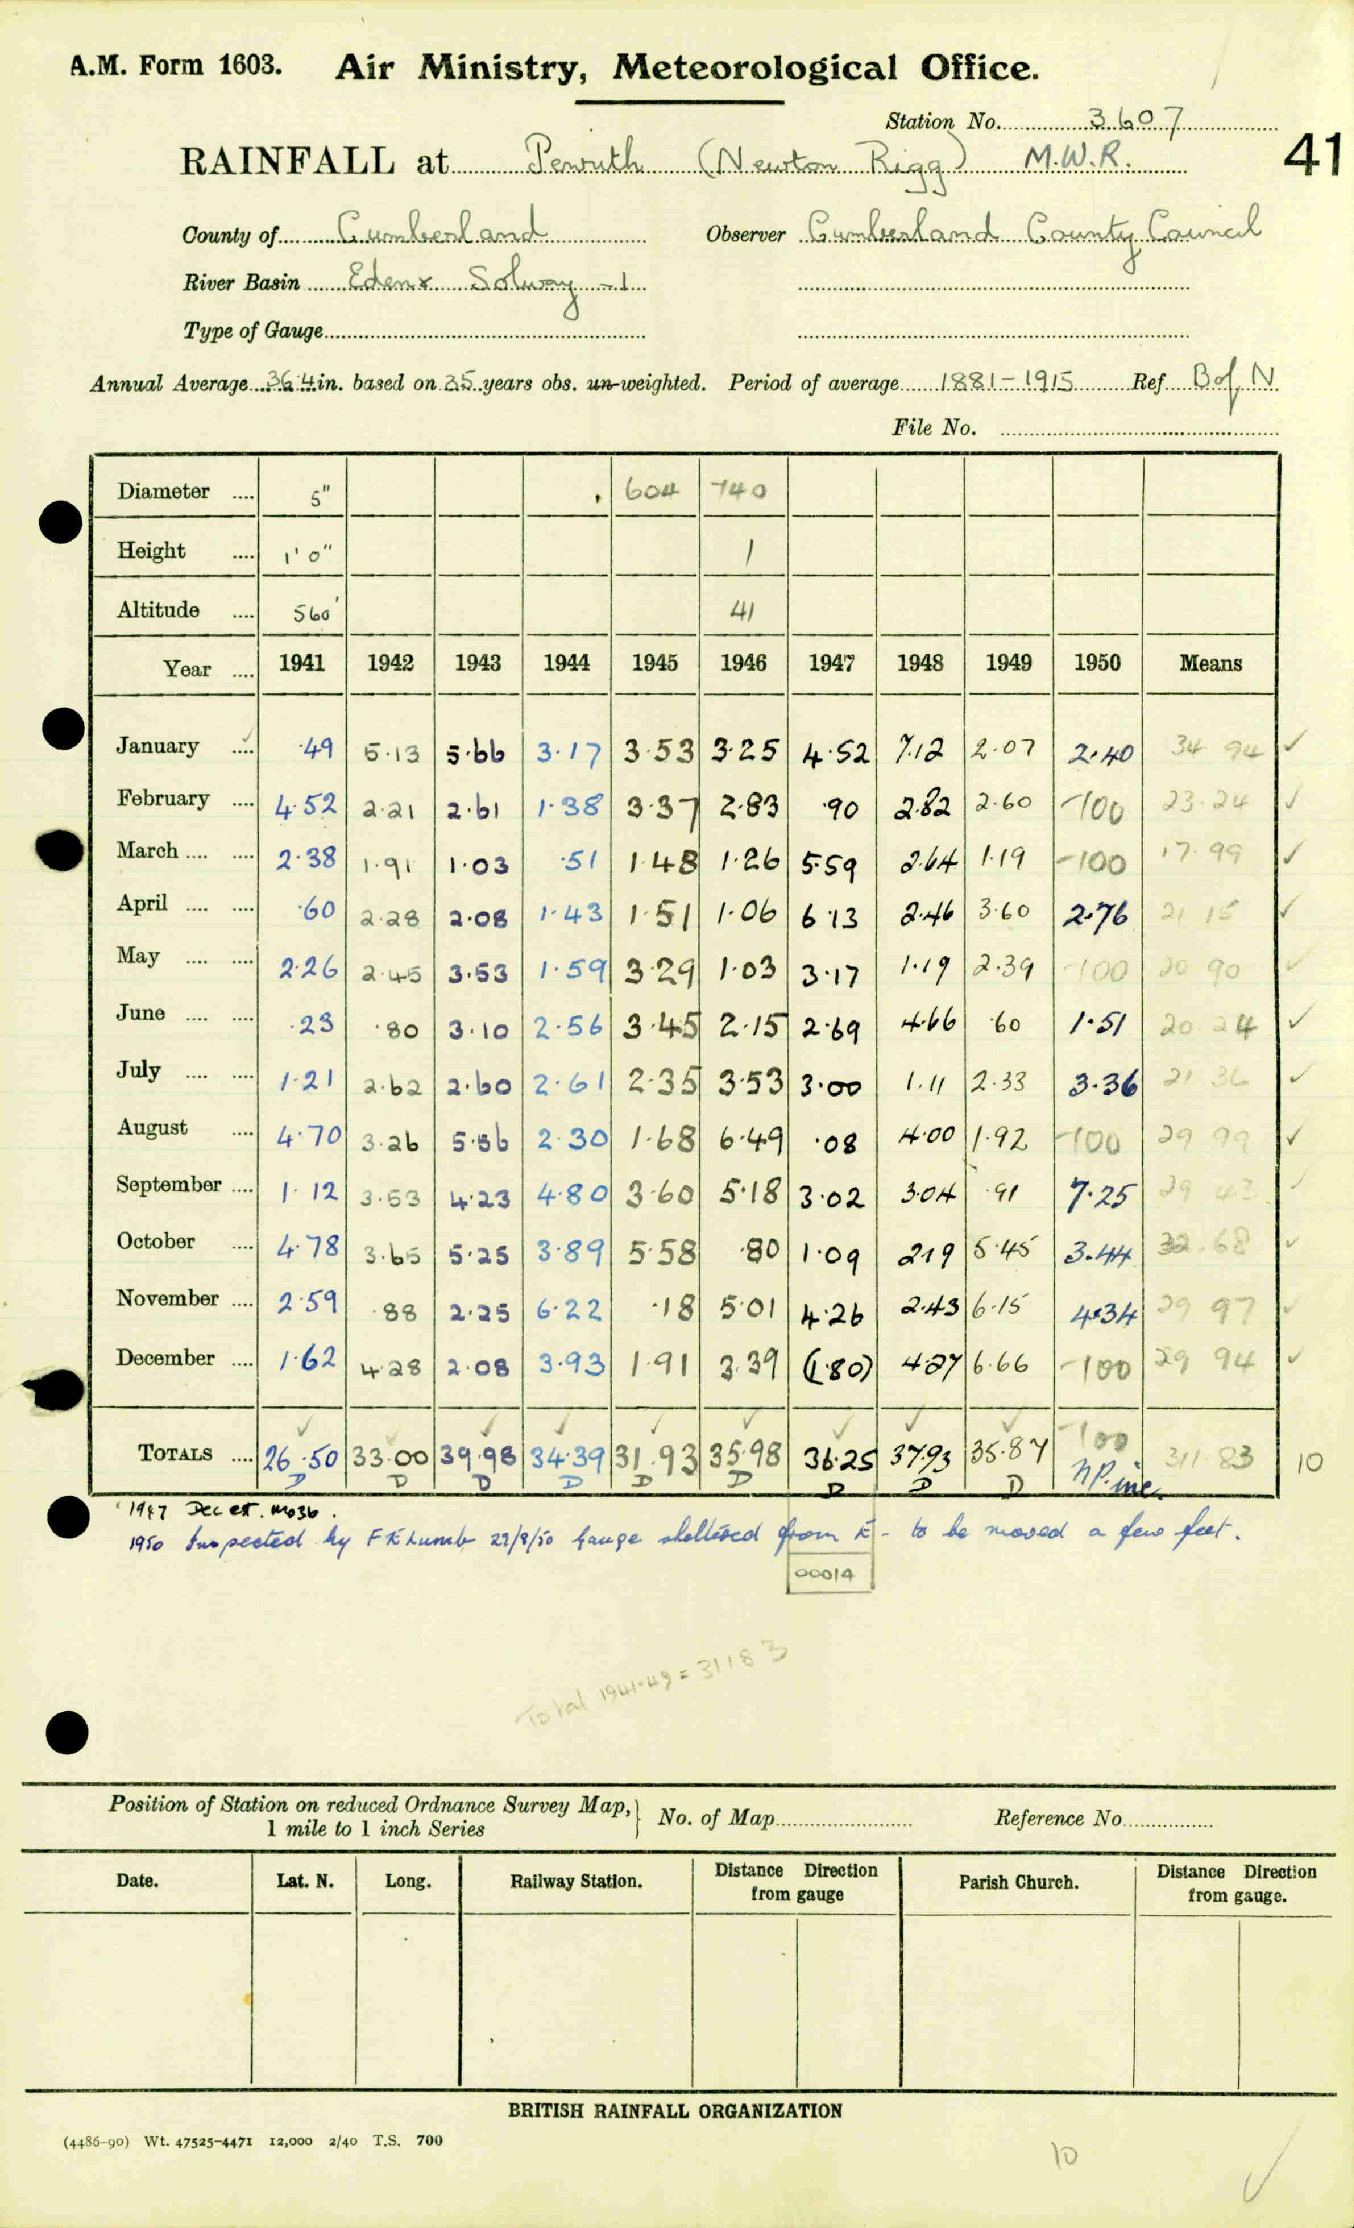 A.M. Form 1603. Air Ministry, Meteorological Office.
Station No. 3607
RAINFALL at Penrith (Newton Rigg) M.W.R. 41
County of Cumberland Observer Cumberland County Council
River Basin Eden & Solway - 1
Type of Gauge
Annual Average 36.4 in. based on 35 years obs. un-weighted. Period of average 1881-1915 Ref B of N
File No.
Diameter .... 5" 604 740
Height .... 1' 0" 1
Altitude .... 560' 41
Year .... 1941 1942 1943 1944 1945 1946 1947 1948 1949 1950 Means
January .... ·49 5·13 5·66 3·17 3·53 3·25 4·52 7·12 2·07 2·40 34 94 ✓
February .... 4·52 2·21 2·61 1·38 3·37 2·83 ·90 2·82 2·60 -100 23·24 ✓
March .... .... 2·38 1·91 1·03 ·51 1·48 1·26 5·59 2·64 1·19 -100 17·99 ✓
April .... .... ·60 2·28 2·08 1·43 1·51 1·06 6·13 2·46 3·60 2·76 21 15 ✓
May .... .... 2·26 2·45 3·53 1·59 3·29 1·03 3·17 1·19 2·39 -100 20 90 ✓
June .... .... ·23 ·80 3·10 2·56 3·45 2·15 2·69 4·66 ·60 1·51 20 24 ✓
July .... .... 1·21 2·62 2·60 2·61 2·35 3·53 3·00 1·11 2·33 3·36 21 36 ✓
August .... 4·70 3·26 5·56 2·30 1·68 6·49 ·08 4·00 1·92 -100 29 99 ✓
September .... 1·12 3·53 4·23 4·80 3·60 5·18 3·02 3·04 ·91 7·25 29 43 ✓
October .... 4·78 3·65 5·25 3·89 5·58 ·80 1·09 2·19 5·45 3·44 32·68 ✓
November .... 2·59 ·88 2·25 6·22 ·18 5·01 4·26 2·43 6·15 4·34 29 97 ✓
December .... 1·62 4·28 2·08 3·93 1·91 3·39 (1·80) 4·27 6·66 -100 29 94 ✓
TOTALS .... 26·50 33·00 39·98 34·39 31·93 35·98 36·25 37·93 35·87 -100 311·83 10
D D D D D D D D D NP. inc.
1947 Dec est. MO36.
1950 Inspected by F E Lumb 22/8/50 Gauge sheltered from E - to be moved a few feet.
00014
Total 1941-49 = 311 83
Position of Station on reduced Ordnance Survey Map, 1 mile to 1 inch Series No. of Map Reference No.
Date. Lat. N. Long. Railway Station. Distance Direction from gauge Parish Church. Distance Direction from gauge.
BRITISH RAINFALL ORGANIZATION
(4486-90) Wt. 47525-4471 12,000 2/40 T.S. 700
10 ✓